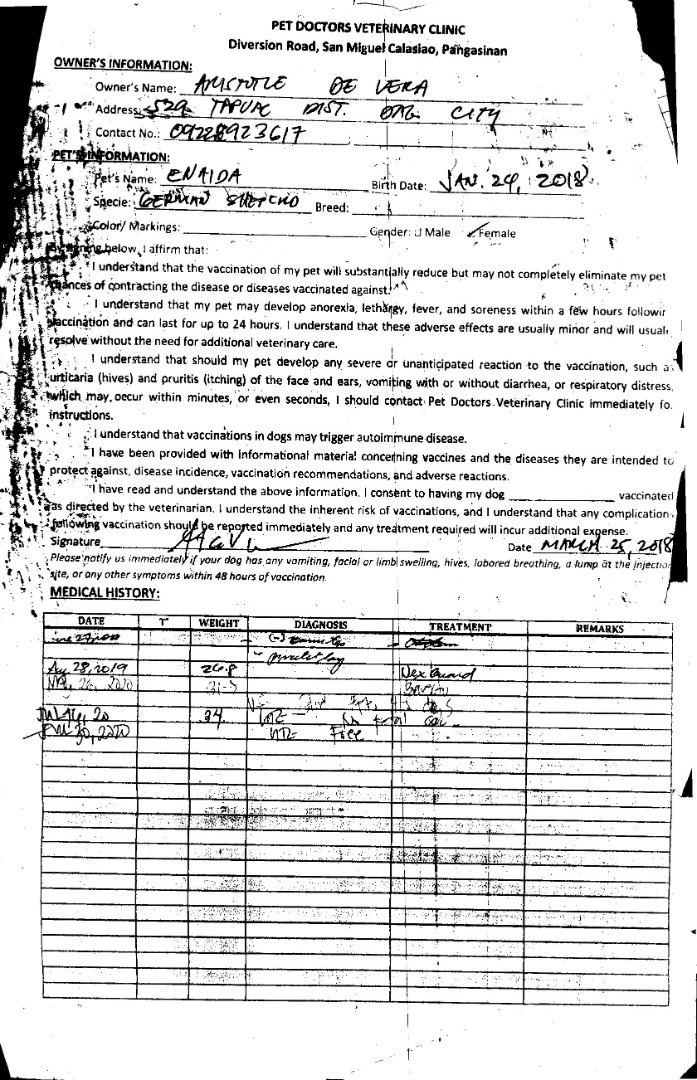 PET DOCTORS VETERINARY CLINIC
Diversion Road, San Miguel Calasiao, Pangasinan
OWNER'S INFORMATION:
Owner's Name: ARISTOTLE DE VERA
Address: 529 TAPUAC DIST. DAG. CITY
Contact No.: 09228923617
PET'S INFORMATION:
Pet's Name: ENAIDA Birth Date: JAN. 24, 2018
Specie: GERMAN SHEPERD Breed:
Color/ Markings: Gender: Male Female
By signing below, I affirm that:
I understand that the vaccination of my pet will substantially reduce but may not completely eliminate my pet
chances of contracting the disease or diseases vaccinated against.
I understand that my pet may develop anorexia, lethargy, fever, and soreness within a few hours followir
vaccination and can last for up to 24 hours. I understand that these adverse effects are usually minor and will usual
resolve without the need for additional veterinary care.
I understand that should my pet develop any severe or unanticipated reaction to the vaccination, such a
urticaria (hives) and pruritis (itching) of the face and ears, vomiting with or without diarrhea, or respiratory distress,
which may occur within minutes, or even seconds, I should contact Pet Doctors Veterinary Clinic immediately fo
instructions.
I understand that vaccinations in dogs may trigger autoimmune disease.
I have been provided with informational material concerning vaccines and the diseases they are intended to
protect against, disease incidence, vaccination recommendations, and adverse reactions.
I have read and understand the above information. I consent to having my dog vaccinated
as directed by the veterinarian. I understand the inherent risk of vaccinations, and I understand that any complication
following vaccination should be reported immediately and any treatment required will incur additional expense.
Signature Date MARCH 25, 2018
Please notify us immediately if your dog has any vomiting, facial or limb swelling, hives, labored breathing, a lump at the injection
site, or any other symptoms within 48 hours of vaccination.
MEDICAL HISTORY:
DATE T WEIGHT DIAGNOSIS TREATMENT REMARKS
28, 2019 26.8 Nexguard
26, 2020 31.5
20 34
30, 2020 Free